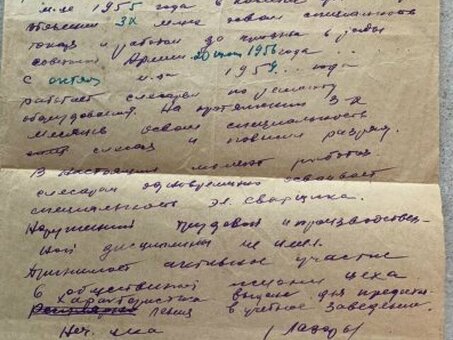 1955 года в
3х мес. освоил специальность
токаря и работал до призыва в ряды
советской Армии 20 1956 года.
С октября м-ца 1959 года
работает слесарем по ремонту
оборудования. На протяжении 3-х
месяцев освоил специальность
слесаря и повысил разряд.
В настоящий момент работая
слесарем одновременно осваивает
специальность эл. сварщика.
Нарушений трудовой и производствен-
ной дисциплины не имел.
Принимает активное участие
в общественной жизни цеха
Характеристика выдана для предъяв-
ления в учебное заведение.
Нач. цеха